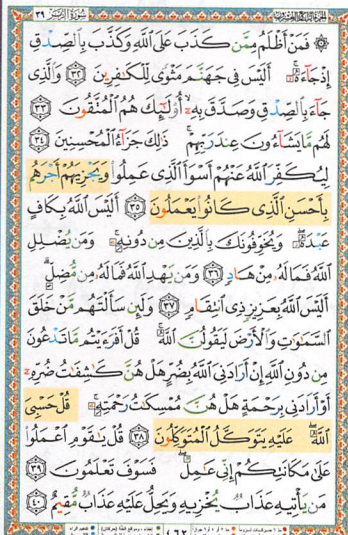 سُورَةُ الزُّمَرِ ٣٩
۞ فَمَنْ أَظْلَمُ مِمَّن كَذَبَ عَلَى ٱللَّهِ وَكَذَّبَ بِٱلصِّدْقِ
إِذْ جَآءَهُۥٓ ۚ أَلَيْسَ فِى جَهَنَّمَ مَثْوًى لِّلْكَـٰفِرِينَ ٣٢ وَٱلَّذِى
جَآءَ بِٱلصِّدْقِ وَصَدَّقَ بِهِۦٓ ۙ أُو۟لَـٰٓئِكَ هُمُ ٱلْمُتَّقُونَ ٣٣
لَهُم مَّا يَشَآءُونَ عِندَ رَبِّهِمْ ۚ ذَٰلِكَ جَزَآءُ ٱلْمُحْسِنِينَ ٣٤
لِيُكَفِّرَ ٱللَّهُ عَنْهُمْ أَسْوَأَ ٱلَّذِى عَمِلُوا۟ وَيَجْزِيَهُمْ أَجْرَهُم
بِأَحْسَنِ ٱلَّذِى كَانُوا۟ يَعْمَلُونَ ٣٥ أَلَيْسَ ٱللَّهُ بِكَافٍ
عَبْدَهُۥ ۖ وَيُخَوِّفُونَكَ بِٱلَّذِينَ مِن دُونِهِۦ ۚ وَمَن يُضْلِلِ
ٱللَّهُ فَمَا لَهُۥ مِنْ هَادٍ ٣٦ وَمَن يَهْدِ ٱللَّهُ فَمَا لَهُۥ مِن مُّضِلٍّ ۗ
أَلَيْسَ ٱللَّهُ بِعَزِيزٍ ذِى ٱنتِقَامٍ ٣٧ وَلَئِن سَأَلْتَهُم مَّنْ خَلَقَ
ٱلسَّمَـٰوَٰتِ وَٱلْأَرْضَ لَيَقُولُنَّ ٱللَّهُ ۚ قُلْ أَفَرَءَيْتُم مَّا تَدْعُونَ
مِن دُونِ ٱللَّهِ إِنْ أَرَادَنِىَ ٱللَّهُ بِضُرٍّ هَلْ هُنَّ كَـٰشِفَـٰتُ ضُرِّهِۦٓ
أَوْ أَرَادَنِى بِرَحْمَةٍ هَلْ هُنَّ مُمْسِكَـٰتُ رَحْمَتِهِۦ ۚ قُلْ حَسْبِىَ
ٱللَّهُ ۖ عَلَيْهِ يَتَوَكَّلُ ٱلْمُتَوَكِّلُونَ ٣٨ قُلْ يَـٰقَوْمِ ٱعْمَلُوا۟
عَلَىٰ مَكَانَتِكُمْ إِنِّى عَـٰمِلٌ ۖ فَسَوْفَ تَعْلَمُونَ ٣٩
مَن يَأْتِيهِ عَذَابٌ يُخْزِيهِ وَيَحِلُّ عَلَيْهِ عَذَابٌ مُّقِيمٌ ٤٠
٤٦٢